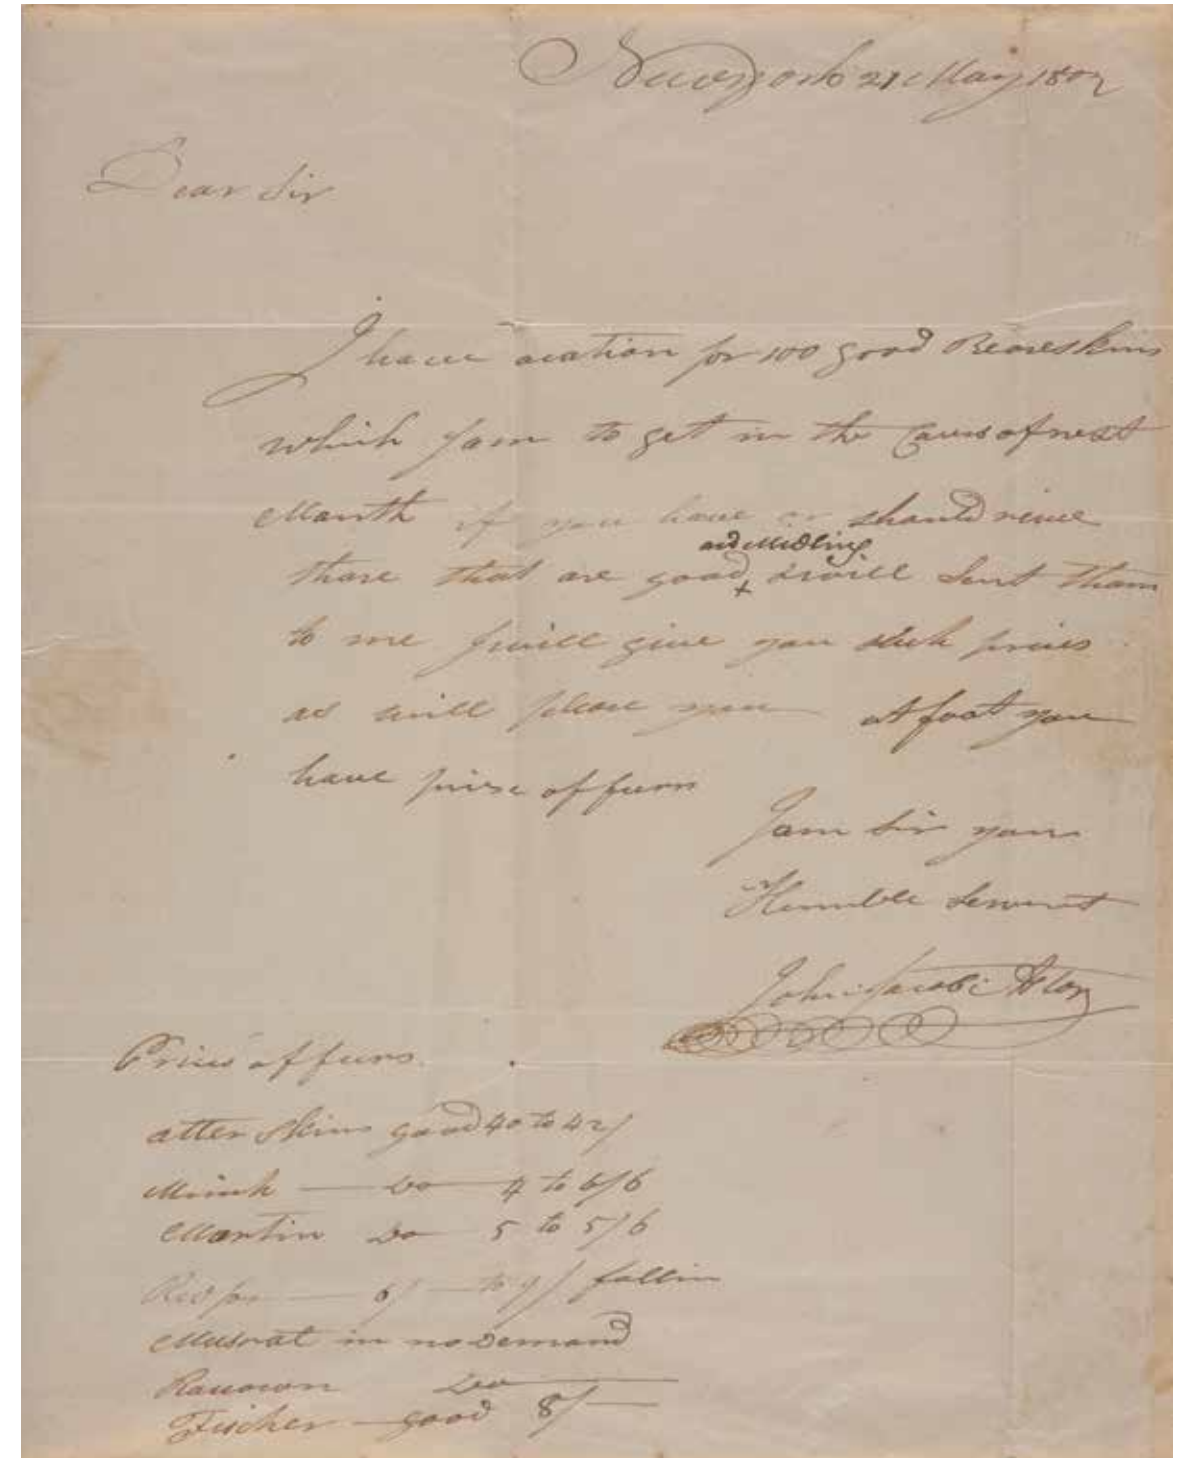 Newyork 21 May 1807
Dear Sir
I have ocation for 100 good Beareskins
which I am to get in the Cours of next
Manth if you have or should reieve
and Midling
thase that are good + & will Sent tham
to me I will give you such prices
as will please you at foot you
have prise of furrs
I am Sir your
Humble Servent
John Jacob Astor
Prices of furrs.
otter Skins good 40 to 42/
Minck — Do — 4 to 6/6
Martin Do — 5 to 5/6
Red fox — 6/ — to 9/ fallin
Musrat in no Demand
Racuwn Do —
Fischer — good 8/ —